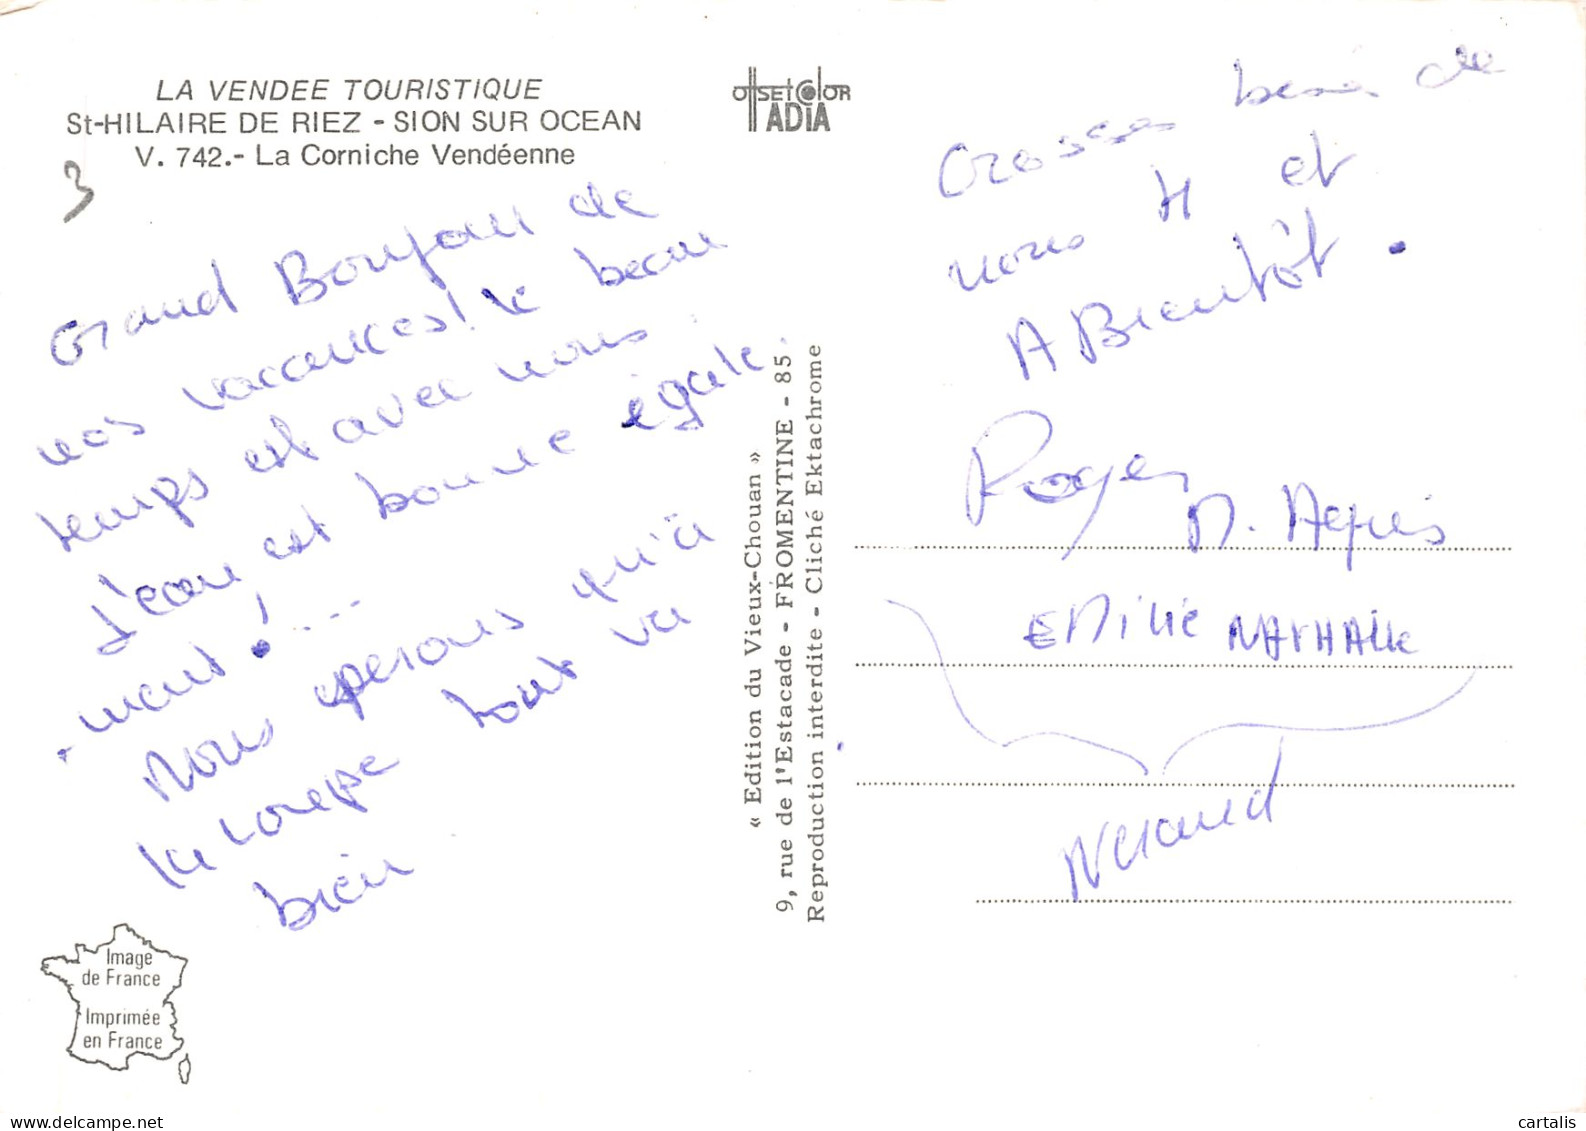 LA VENDEE TOURISTIQUE
St-HILAIRE DE RIEZ - SION SUR OCEAN
V. 742.- La Corniche Vendéenne
3
OffSET COlOR
IADIA
Grand Bonjour de
nos vacances! le beau
temps est avec nous.
L'eau est bonne égale
-ment! ...
Nous esperons qu'à
la tout va
bien
Grosses bises de
nous 4 et
A Bientôt.
Roger
M. Agnès
EMILIE NATHALIE
« Edition du Vieux-Chouan »
9, rue de l'Estacade - FROMENTINE - 85
Reproduction interdite - Cliché Ektachrome
Image
de France
Imprimée
en France
delcampe.net
cartalis